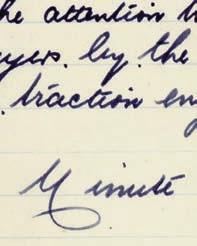 he attention
by the
traction en
Minute